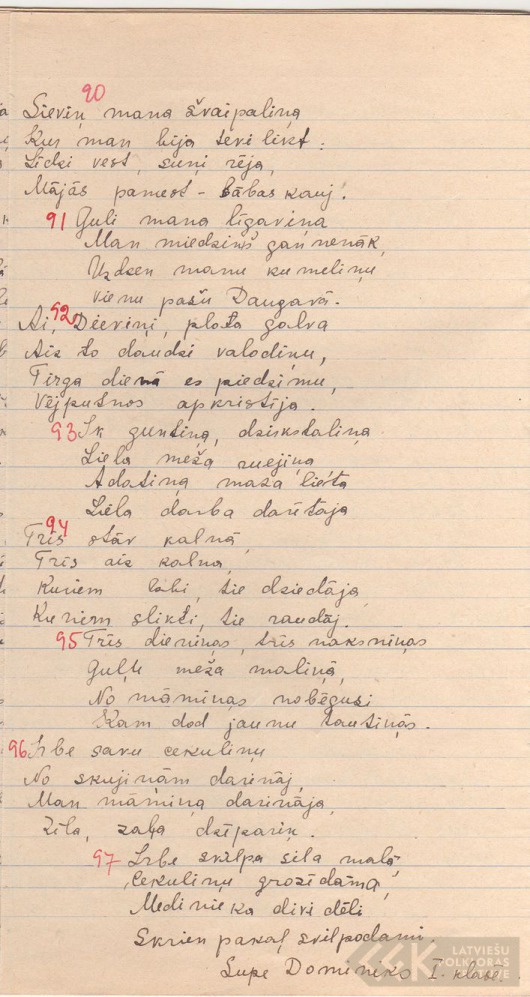 90
Sieviņ mana švaipaliņa
Kur man bija tevi likt:
Līdzi vest, suņi rēja,
Mājās pamest - bābas kauj!
91 Guli mana līgaviņa
Man miedziņš gan nenāk,
Uzdzen manu kumeliņu
Vienu pašu Daugavā.
92 Ai, Dieviņi, plata galva
Aiz to daudzi valodiņu,
Tirga dienā es piedzimu,
Vējputnos apkristīja.
93 Ik guntiņa, dzirkstaliņa
Liela meža
Adatiņa maza lieta
Liela darba darītāja
94
Trīs stāv kalnā,
Trīs aiz kalna,
Kuriem labi, tie dziedāja,
Kuriem slikti, tie raudāj.
95 Trīs dieniņas, trīs naksniņas
Guļu meža maliņā,
No māmiņas nobēgusi
Kam dod jaunu tautiņās.
96 Irbe savu cekuliņu
No skujiņām darināj,
Man māmiņa darināja
Zila, zaļa dzīpariņ.
97 Irbe svilpa sila malā,
Cekuliņu grozīdama,
Medinieka divi dēli
Skrien pakaļ svilpodami.
Lupe Domineks I. klasē.
LATVIEŠU
FOLKLORAS
KRĀTUVE